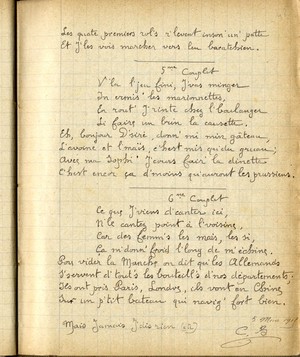 Les quate premiers rol's s'levent inson'un' patte
Et j'les vois marcher vers leu baratchien.
5me Couplet
V'là l'jeu fini, j'vas minger
In ernir' les marionnettes,
En rout' j'rinte chez l'boulanger
Li faire un brin la causette.
Eh, bonjour D'siré, donn' mi min gâteau,
L'avoine et l'maïs, c'hest mis qu'du gruau;
Avec ma Sophi' j'cours fair' la dinette
C'hest encor' ça d'moins qu'auront les prussiens.
6me Couplet
Ce que j'viens d'canter ici,
N'le cantez point à l'voisine,
Car des femm's les mais, les si,
Ça m'donn' froid l'long de m'échine,
Por vider la Manche on dit qu'les Allemands
S'servent d'tout's les bouteill's d'nos départements;
Ils ont pris Paris, Londres, ils vont en Chine
Sur un p'tit bateau qui navig' fort bien.
Mais Jamais
5 Mars